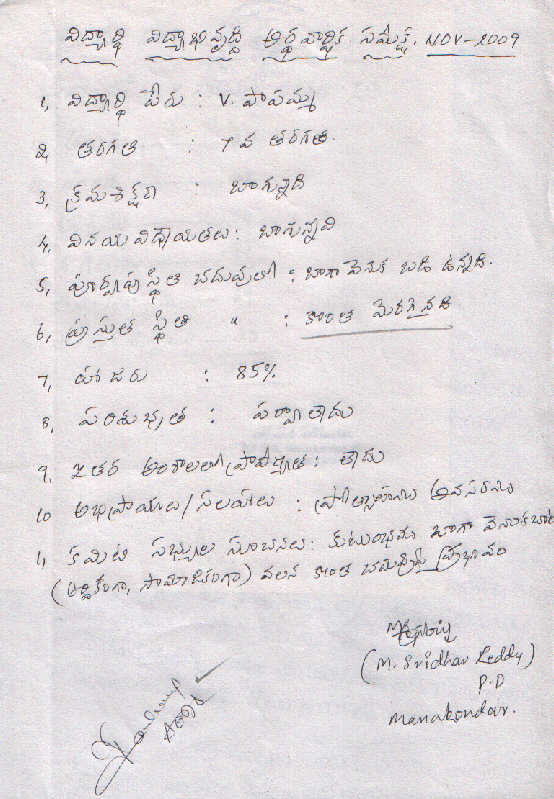 విద్యార్థి విద్యాభివృద్ధి అర్థవార్షిక సమీక్ష. NOV-2009
1, విద్యార్థి పేరు : V. పాపమ్మ
2, తరగతి : 7 వ తరగతి.
3, క్రమశిక్షణ : బాగున్నది
4, వినయవిధేయతలు: బాగున్నవి
5, పూర్వపు స్థితి చదువులో : బాగా వెనుక బడి ఉన్నది.
6, ప్రస్తుత స్థితి " : కొంత మెరుగైనది
7, హాజరు : 85%
8, పరిశుభ్రత : పర్వాలేదు
9, ఇతర అంశాలలో ప్రావీణ్యత : లేదు
10 అభిప్రాయాలు/సలహాలు : ప్రోత్సాహము అవసరము
11, కమిటి సభ్యుల సూచనలు: కుటుంభము బాగా
(ఆర్థికంగా, సామాజికంగా) వలన కొంత ప్రభావం
(M. Sridhar Reddy)
P.D
Manakondur.